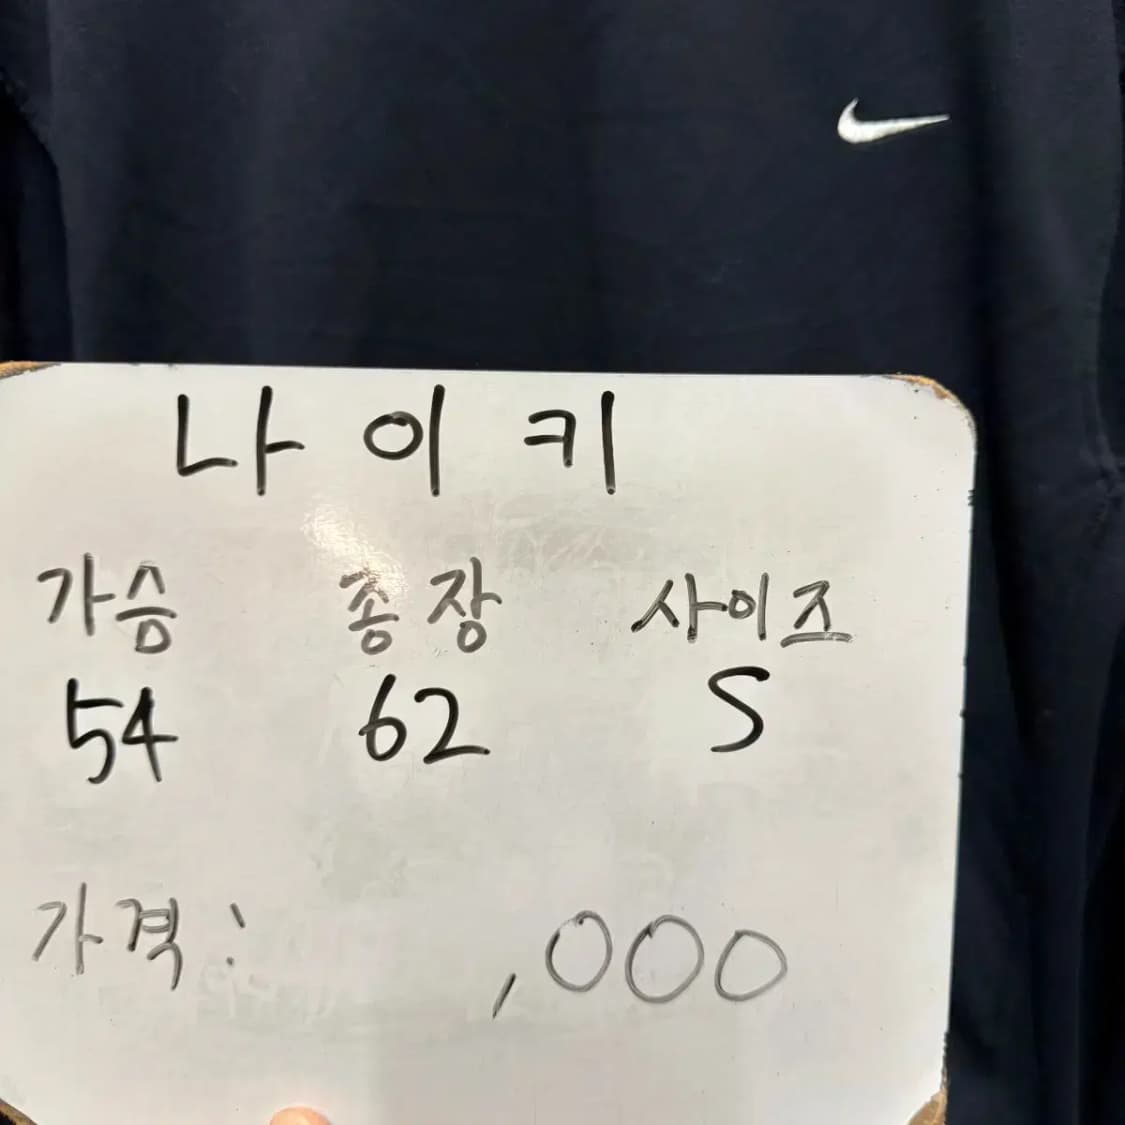 나이키
가슴 총장 사이즈
54 62 S
가격: ,000